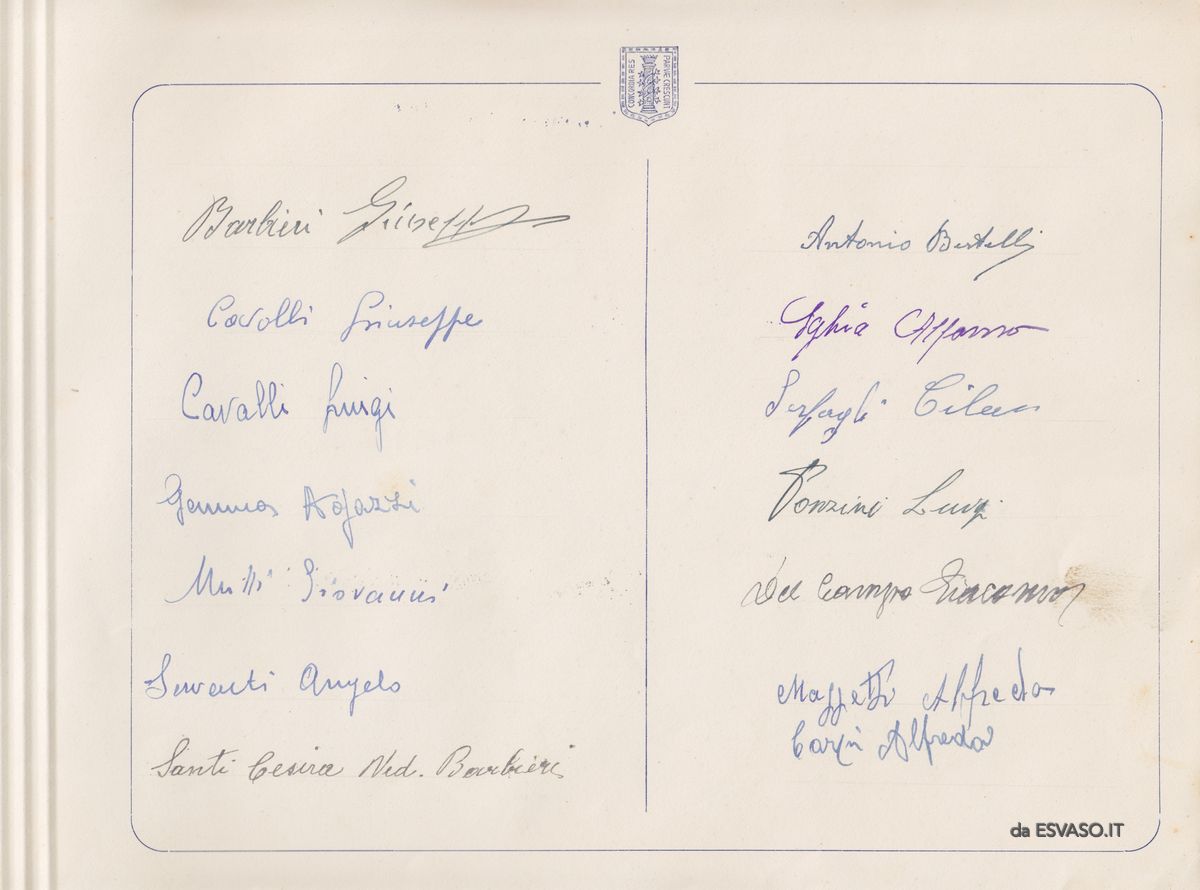 CONCORDIA RES
PARVAE CRESCUNT
Barbieri Giuseppe
Cavalli Giuseppe
Cavalli Luigi
Gemma Agazzi
Mutti Giovanni
Servati Angelo
Santi Cesira Ved. Barbieri
Antonio Bertelli
Alfonso
Ponzini Luigi
Del Campo Giacomo
Mazzetti Alfredo
Carini Alfredo
da ESVASO.IT